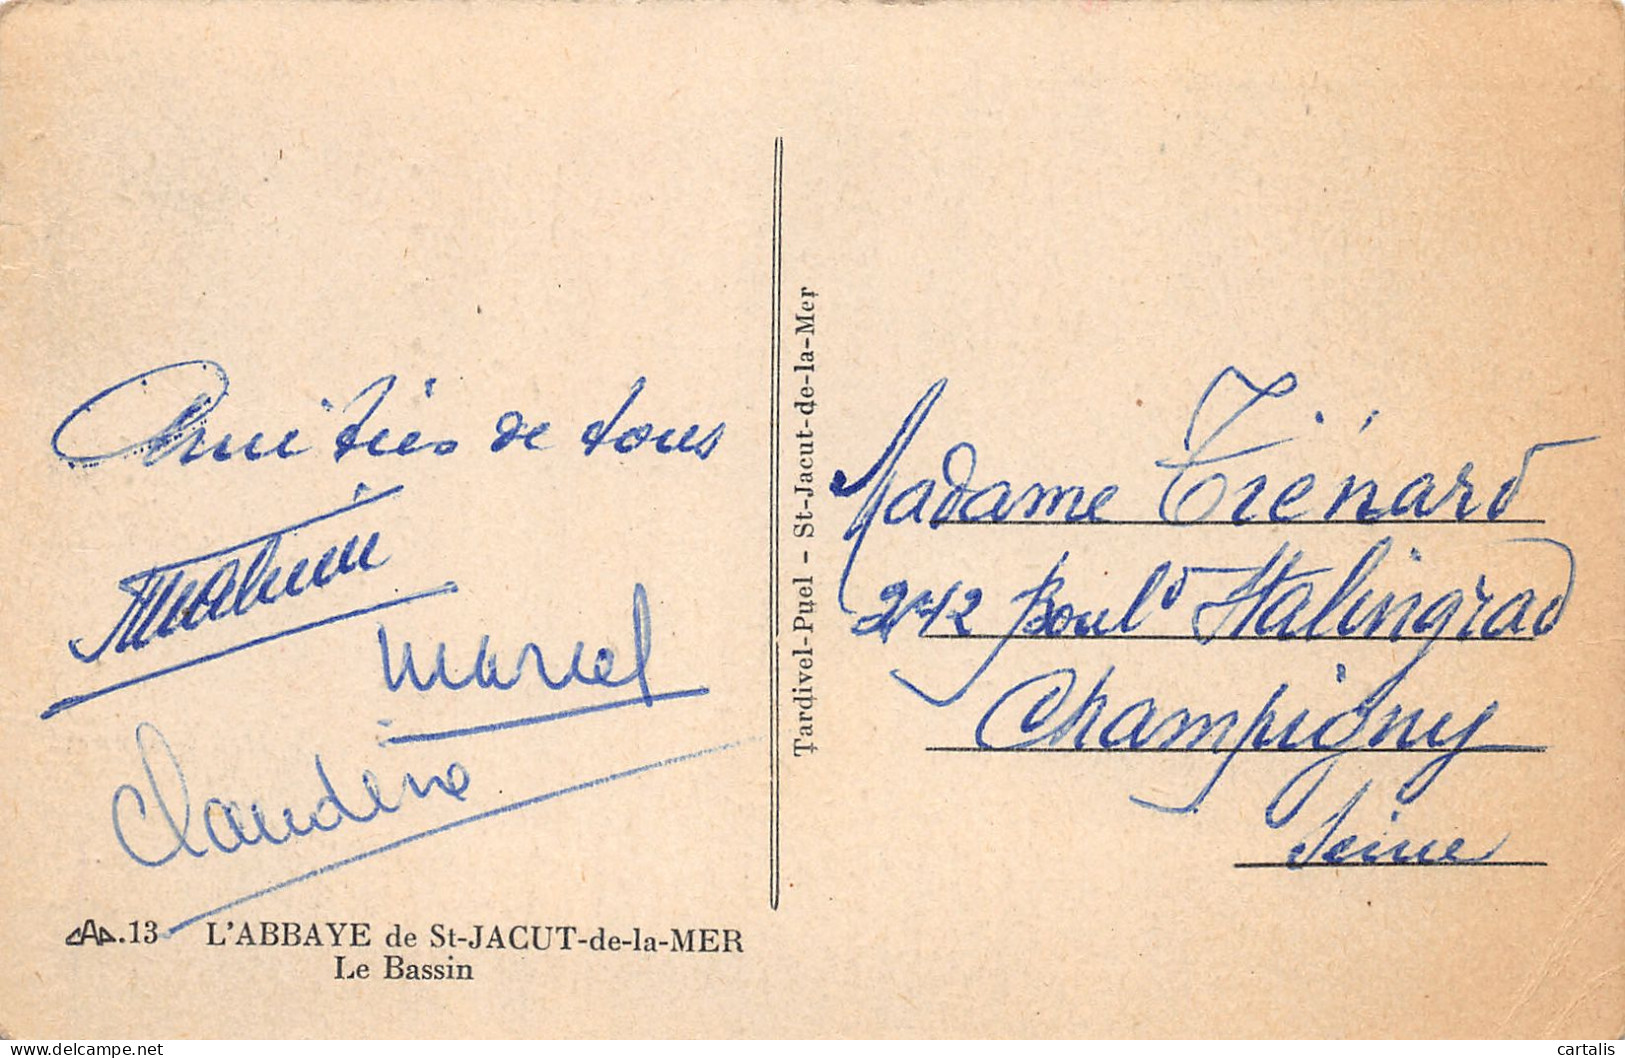 Amitiés de tous
Marcel
Claudine
Madame Tiénard
242 Boul^d Stalingrad
Champigny
Seine
Tardivel-Puel - St-Jacut-de-la-Mer
.13 L'ABBAYE de St-JACUT-de-la-MER
Le Bassin
delcampe.net
cartalis